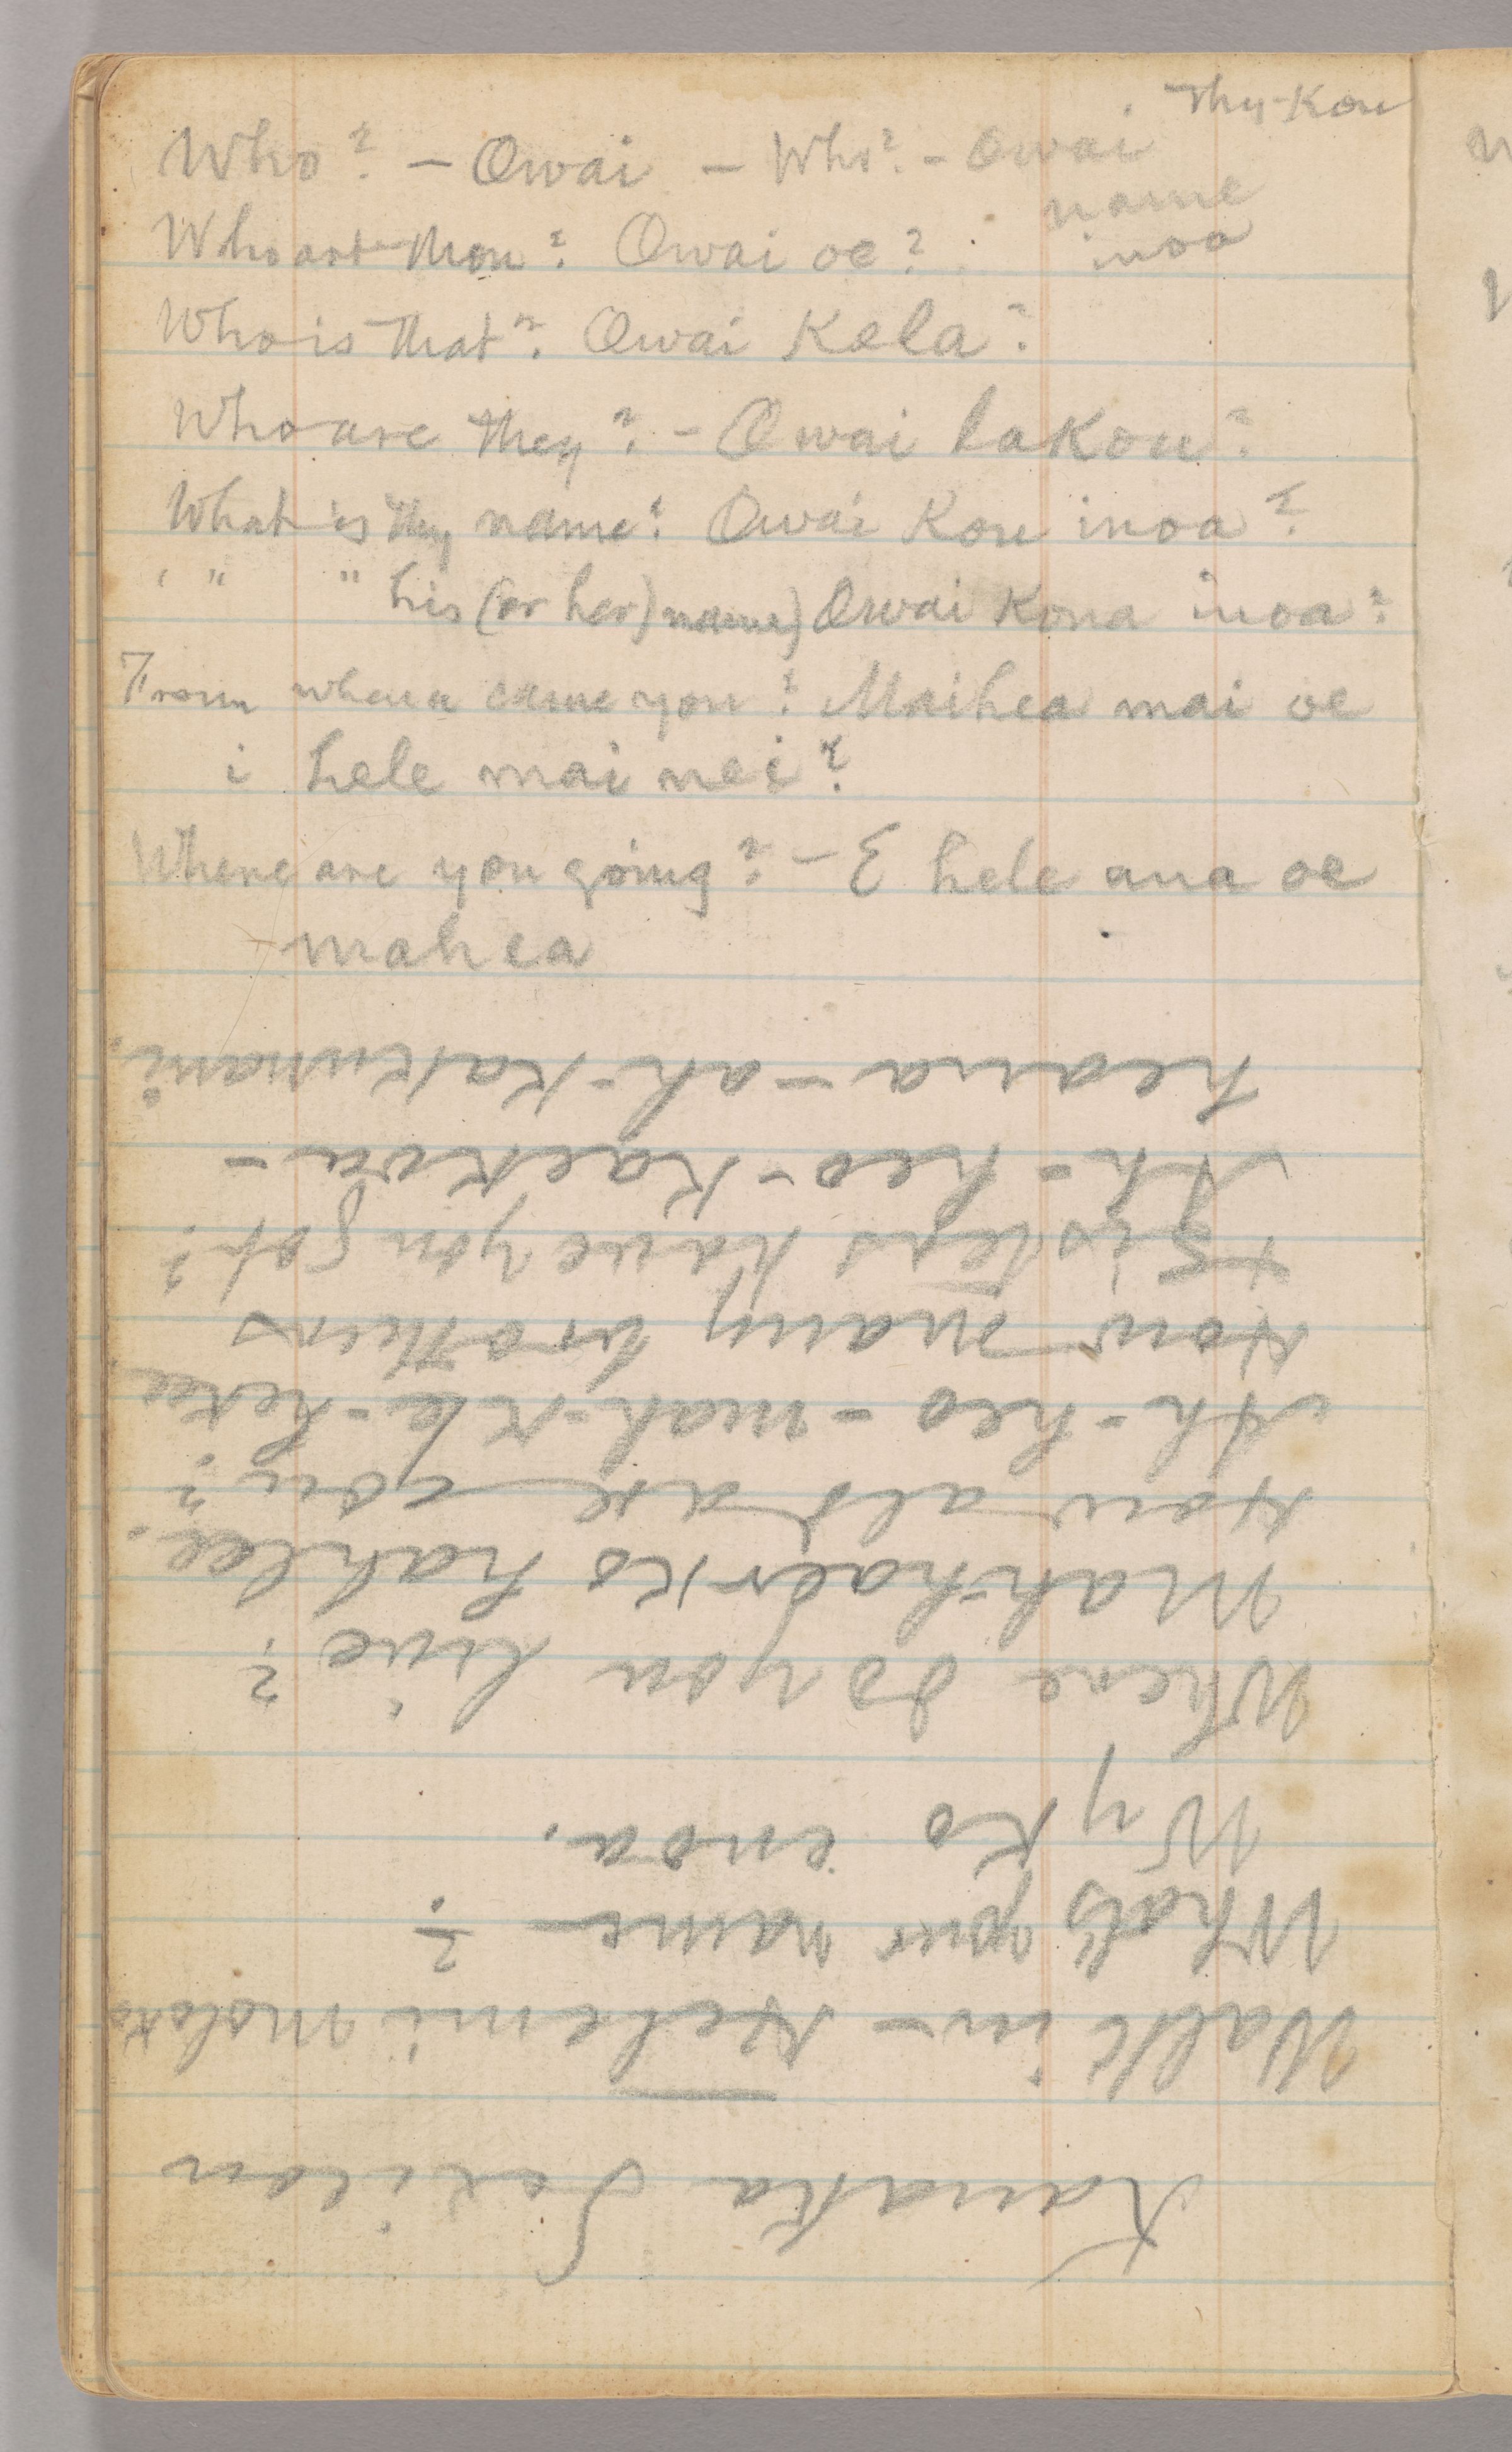 Thy-Kou
Who? - Owai - Who? - Owai
name
inoa
Who art thou? Owai oe?
Who is that? Owai Kela?
Who are they? - Owai lakou?
What is thy name? Owai Kou inoa?
" " " his (or her) name) Owai Kona inoa?
From whence came you? Maihea mai oe
i hele mai nei?
Where are you going? - E hele ana oe
mahea
Kanaka Lexicon
Walk in - Hele mi moloko
What's your name - ?
Wy Ko inoa.
Where do you live?
Mah-haer-Ko hahlee.
How old are you?
Ah-heo-mah-Kla-hekee
How many brothers
Sisters have you got?
Ah-heo-Kaekoa-
heana-ah-Kakunani.